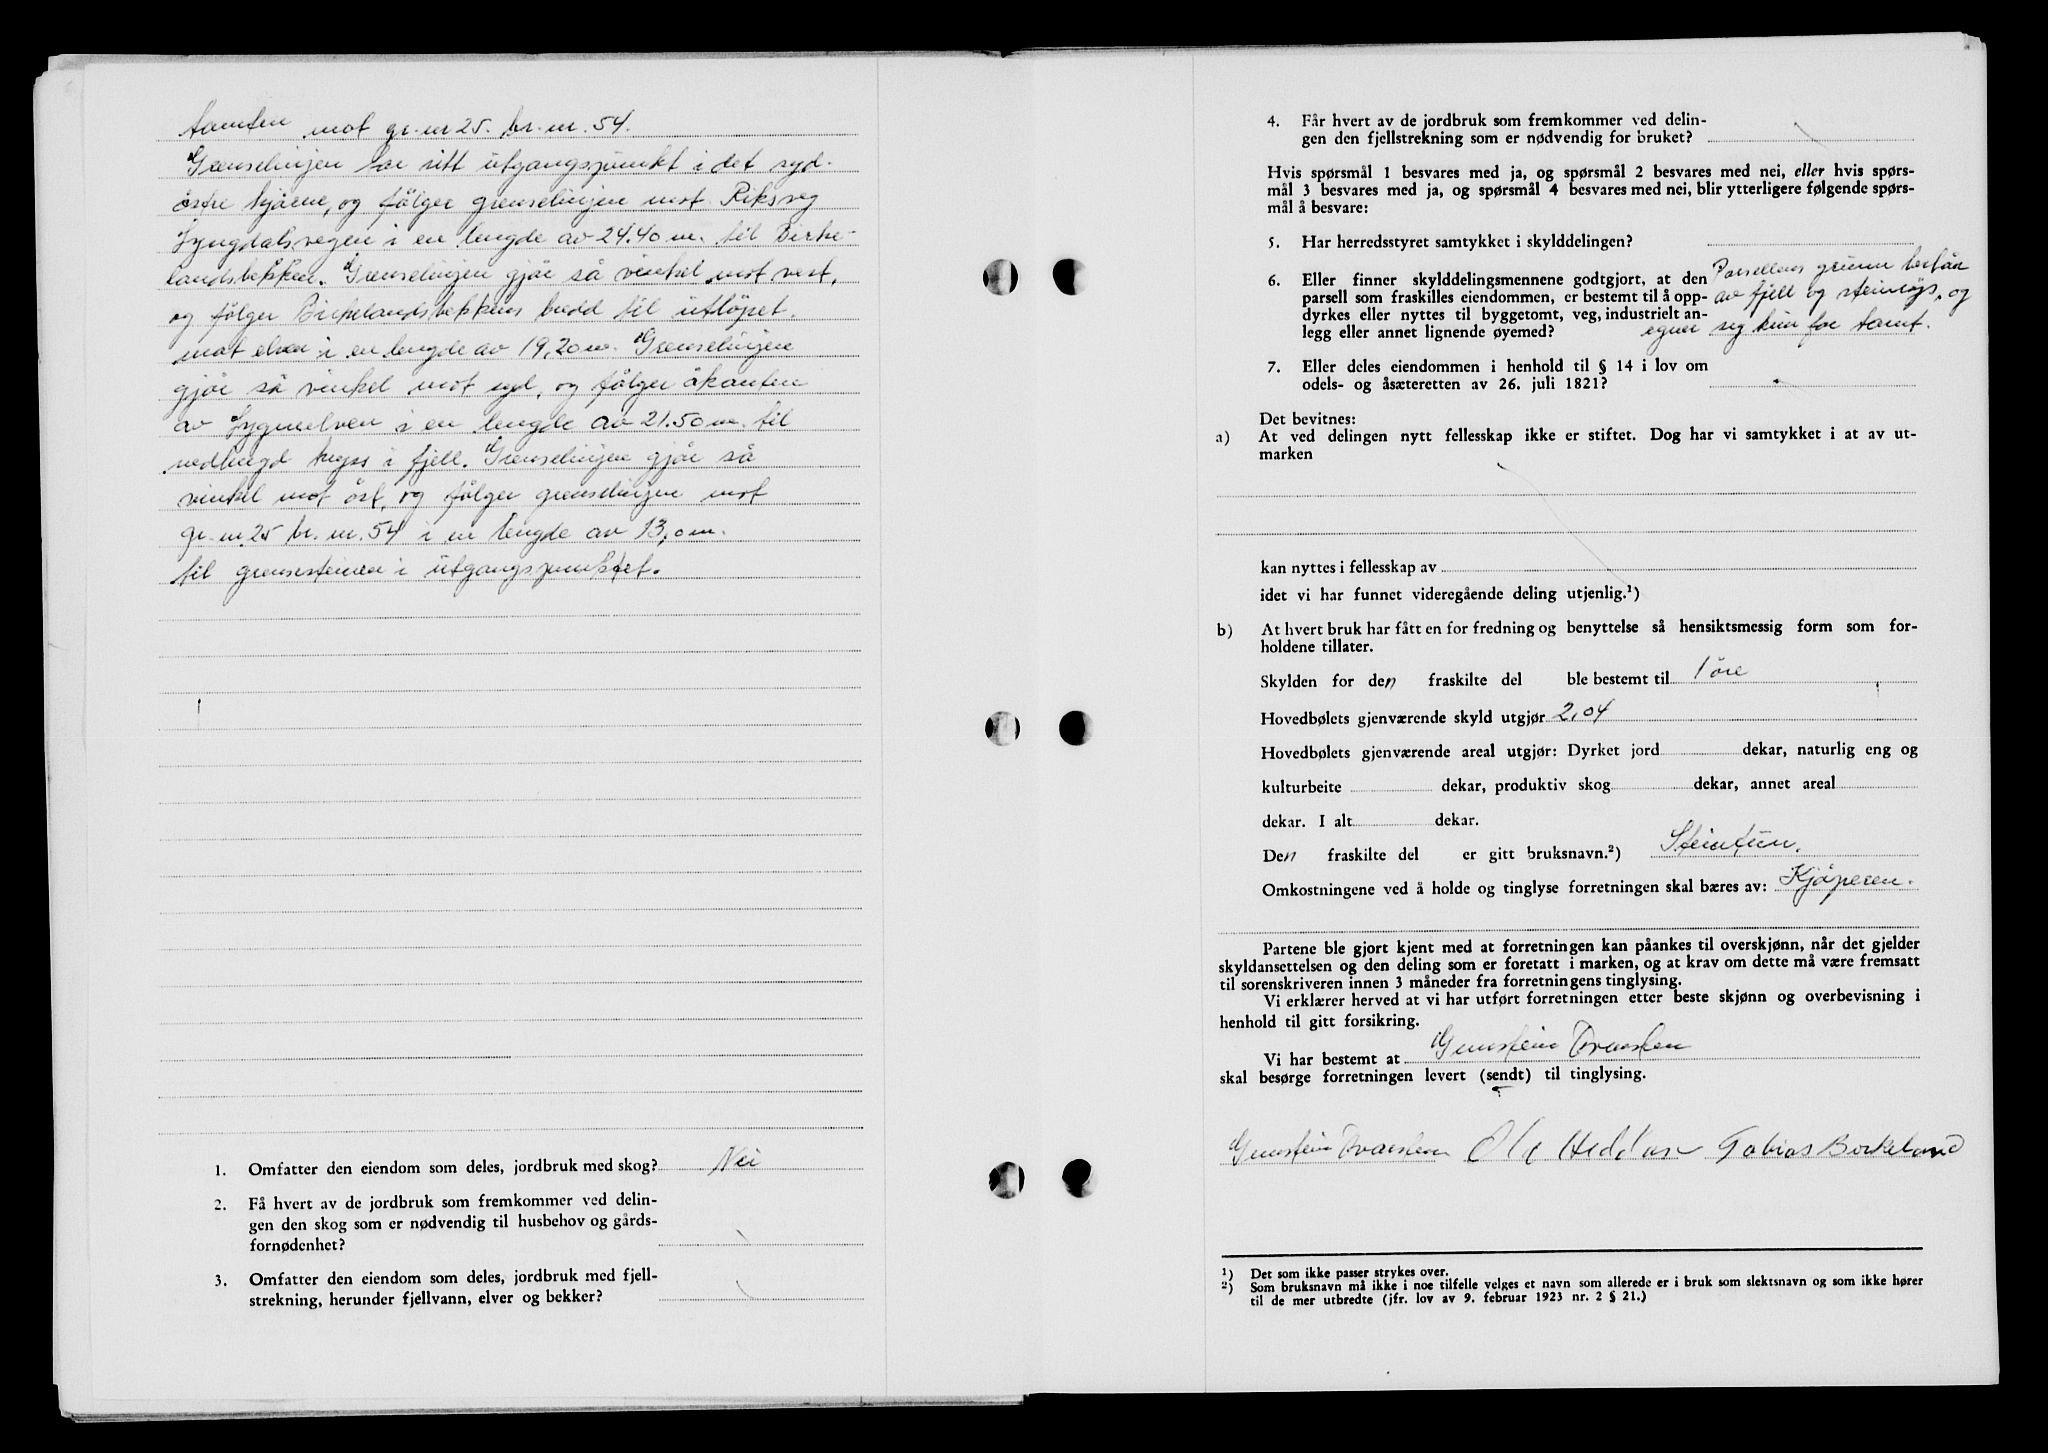 tomten mot gr. nr 25. br. nr. 54.
Grenselinjen har sitt utgangspunkt i det syd-
østre hjørne, og følger grenselinjen mot Riksveg
Lyngdalsvegen i en lengde av 24.40 m. til Birke-
landsbekken. Grenselinjen gjør så vinkel mot vest,
og følger Birkelandsbekkens bredd til utløpet.
mot elven i en lengde av 19,20 m. Grenselinjen
gjør så vinkel mot syd, og følger åkanten
av Lygneelven i en lengde av 21.50 m. til
nedhugd kryss i fjell. Grenselinjen gjør så
vinkel mot øst, og følger grenselinjen mot
gr. nr. 25 br. nr. 54 i en lengde av 13,0 m.
til grensesteinen i utgangspunktet.
1. Omfatter den eiendom som deles, jordbruk med skog? Nei
2. Få hvert av de jordbruk som fremkommer ved delin-
gen den skog som er nødvendig til husbehov og gårds-
fornødenhet?
3. Omfatter den eiendom som deles, jordbruk med fjell-
strekning, herunder fjellvann, elver og bekker?
4. Får hvert av de jordbruk som fremkommer ved delin-
gen den fjellstrekning som er nødvendig for bruket?
Hvis spørsmål 1 besvares med ja, og spørsmål 2 besvares med nei, eller hvis spørs-
mål 3 besvares med ja, og spørsmål 4 besvares med nei, blir ytterligere følgende spørs-
mål å besvare:
5. Har herredsstyret samtykket i skylddelingen?
6. Eller finner skylddelingsmennene godtgjort, at den Parsellens grunn består
parsell som fraskilles eiendommen, er bestemt til å opp- av fjell og steinrøys, og
dyrkes eller nyttes til byggetomt, veg, industrielt an-
legg eller annet lignende øyemed? egner seg kun for tomt.
7. Eller deles eiendommen i henhold til § 14 i lov om
odels- og åsæteretten av 26. juli 1821?
Det bevitnes:
a) At ved delingen nytt fellesskap ikke er stiftet. Dog har vi samtykket i at av ut-
marken
kan nyttes i fellesskap av
idet vi har funnet videregående deling utjenlig.¹)
b) At hvert bruk har fått en for fredning og benyttelse så hensiktsmessig form som for-
holdene tillater.
Skylden for den fraskilte del ble bestemt til 1 øre
Hovedbølets gjenværende skyld utgjør 2,04
Hovedbølets gjenværende areal utgjør: Dyrket jord dekar, naturlig eng og
kulturbeite dekar, produktiv skog dekar, annet areal
dekar. I alt dekar.
Den fraskilte del er gitt bruksnavn.²) Steintun.
Omkostningene ved å holde og tinglyse forretningen skal bæres av: Kjøperen.
Partene ble gjort kjent med at forretningen kan påankes til overskjønn, når det gjelder
skyldansettelsen og den deling som er foretatt i marken, og at krav om dette må være fremsatt
til sorenskriveren innen 3 måneder fra forretningens tinglysing.
Vi erklærer herved at vi har utført forretningen etter beste skjønn og overbevisning i
henhold til gitt forsikring.
Vi har bestemt at Gunstein
skal besørge forretningen levert (sendt) til tinglysing.
Gunstein Ole Tobias Birkeland
¹) Det som ikke passer strykes over.
²) Som bruksnavn må ikke i noe tilfelle velges et navn som allerede er i bruk som slektsnavn og som ikke hører
til de mer utbredte (jfr. lov av 9. februar 1923 nr. 2 § 21.)